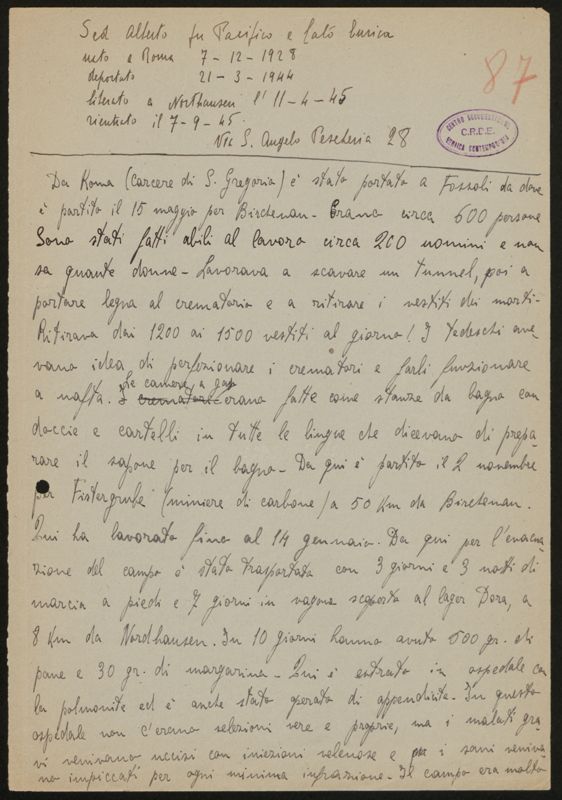 Sed Alberto fu Pacifico e Cato Enrica
nato a Roma 7-12-1928
deportato 21-3-1944
liberato a Northausen l'11-4-45
rientrato il 7-9-45.
Via S. Angelo Pescheria 28
87
CENTRO DOCUMENTAZIONE
C.R.D.E.
EBRAICA CONTEMPORANEA
Da Roma (carcere di S. Gregorio) è stato portato a Fossoli da dove
è partito il 15 maggio per Birchenau - Erano circa 600 persone
Sono stati fatti abili al lavoro circa 200 uomini e non
sa quante donne - Lavorava a scavare un tunnel, poi a
portare legna al crematorio e a ritirare i vestiti dei morti -
Ritirava dai 1200 ai 1500 vestiti al giorno! I tedeschi ave-
vano idea di perfezionare i crematori e farli funzionare
le camere a gas
a nafta. I crematori erano fatte come stanze da bagno con
doccie e cartelli in tutte le lingue che dicevano di prepa-
rare il sapone per il bagno - Da qui è partito il 2 novembre
per Fistergrube (miniere di carbone) a 50 Km da Birchenau.
Qui ha lavorato fino al 14 gennaio. Da qui per l'evacua-
zione del campo è stato trasportato con 3 giorni e 3 notti di
marcia a piedi e 7 giorni in vagone scoperto al lager Dora, a
8 Km da Nordhausen. In 10 giorni hanno avuto 500 gr. di
pane e 30 gr. di margarina - Qui è entrato in ospedale con
la polmonite ed è anche stato operato di appendicite - In questo
ospedale non c'erano selezioni vere e proprie, ma i malati gra-
vi venivano uccisi con iniezioni velenose e i sani veniva-
no impiccati per ogni minima infrazione - Il campo era molto